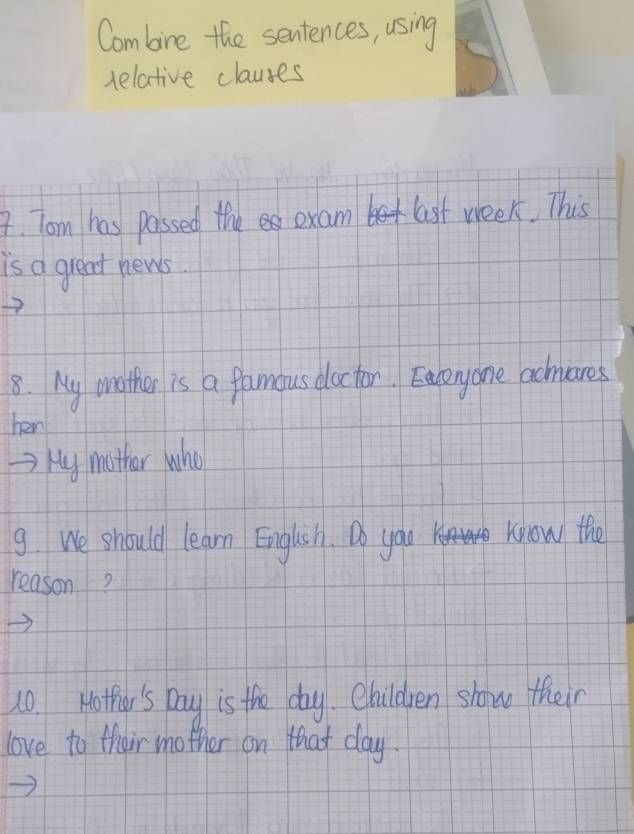 Combine the sentences, using
relative clauses
7. Tom has passed the exam last week. This
is a great news.
→
8. My mother is a famous doctor. Everyone admares
her
→ My mother who
9. We should learn English. Do you know the
reason ?
→
10. Mother's Day is the day. Children show their
love to their mother on that day.
→